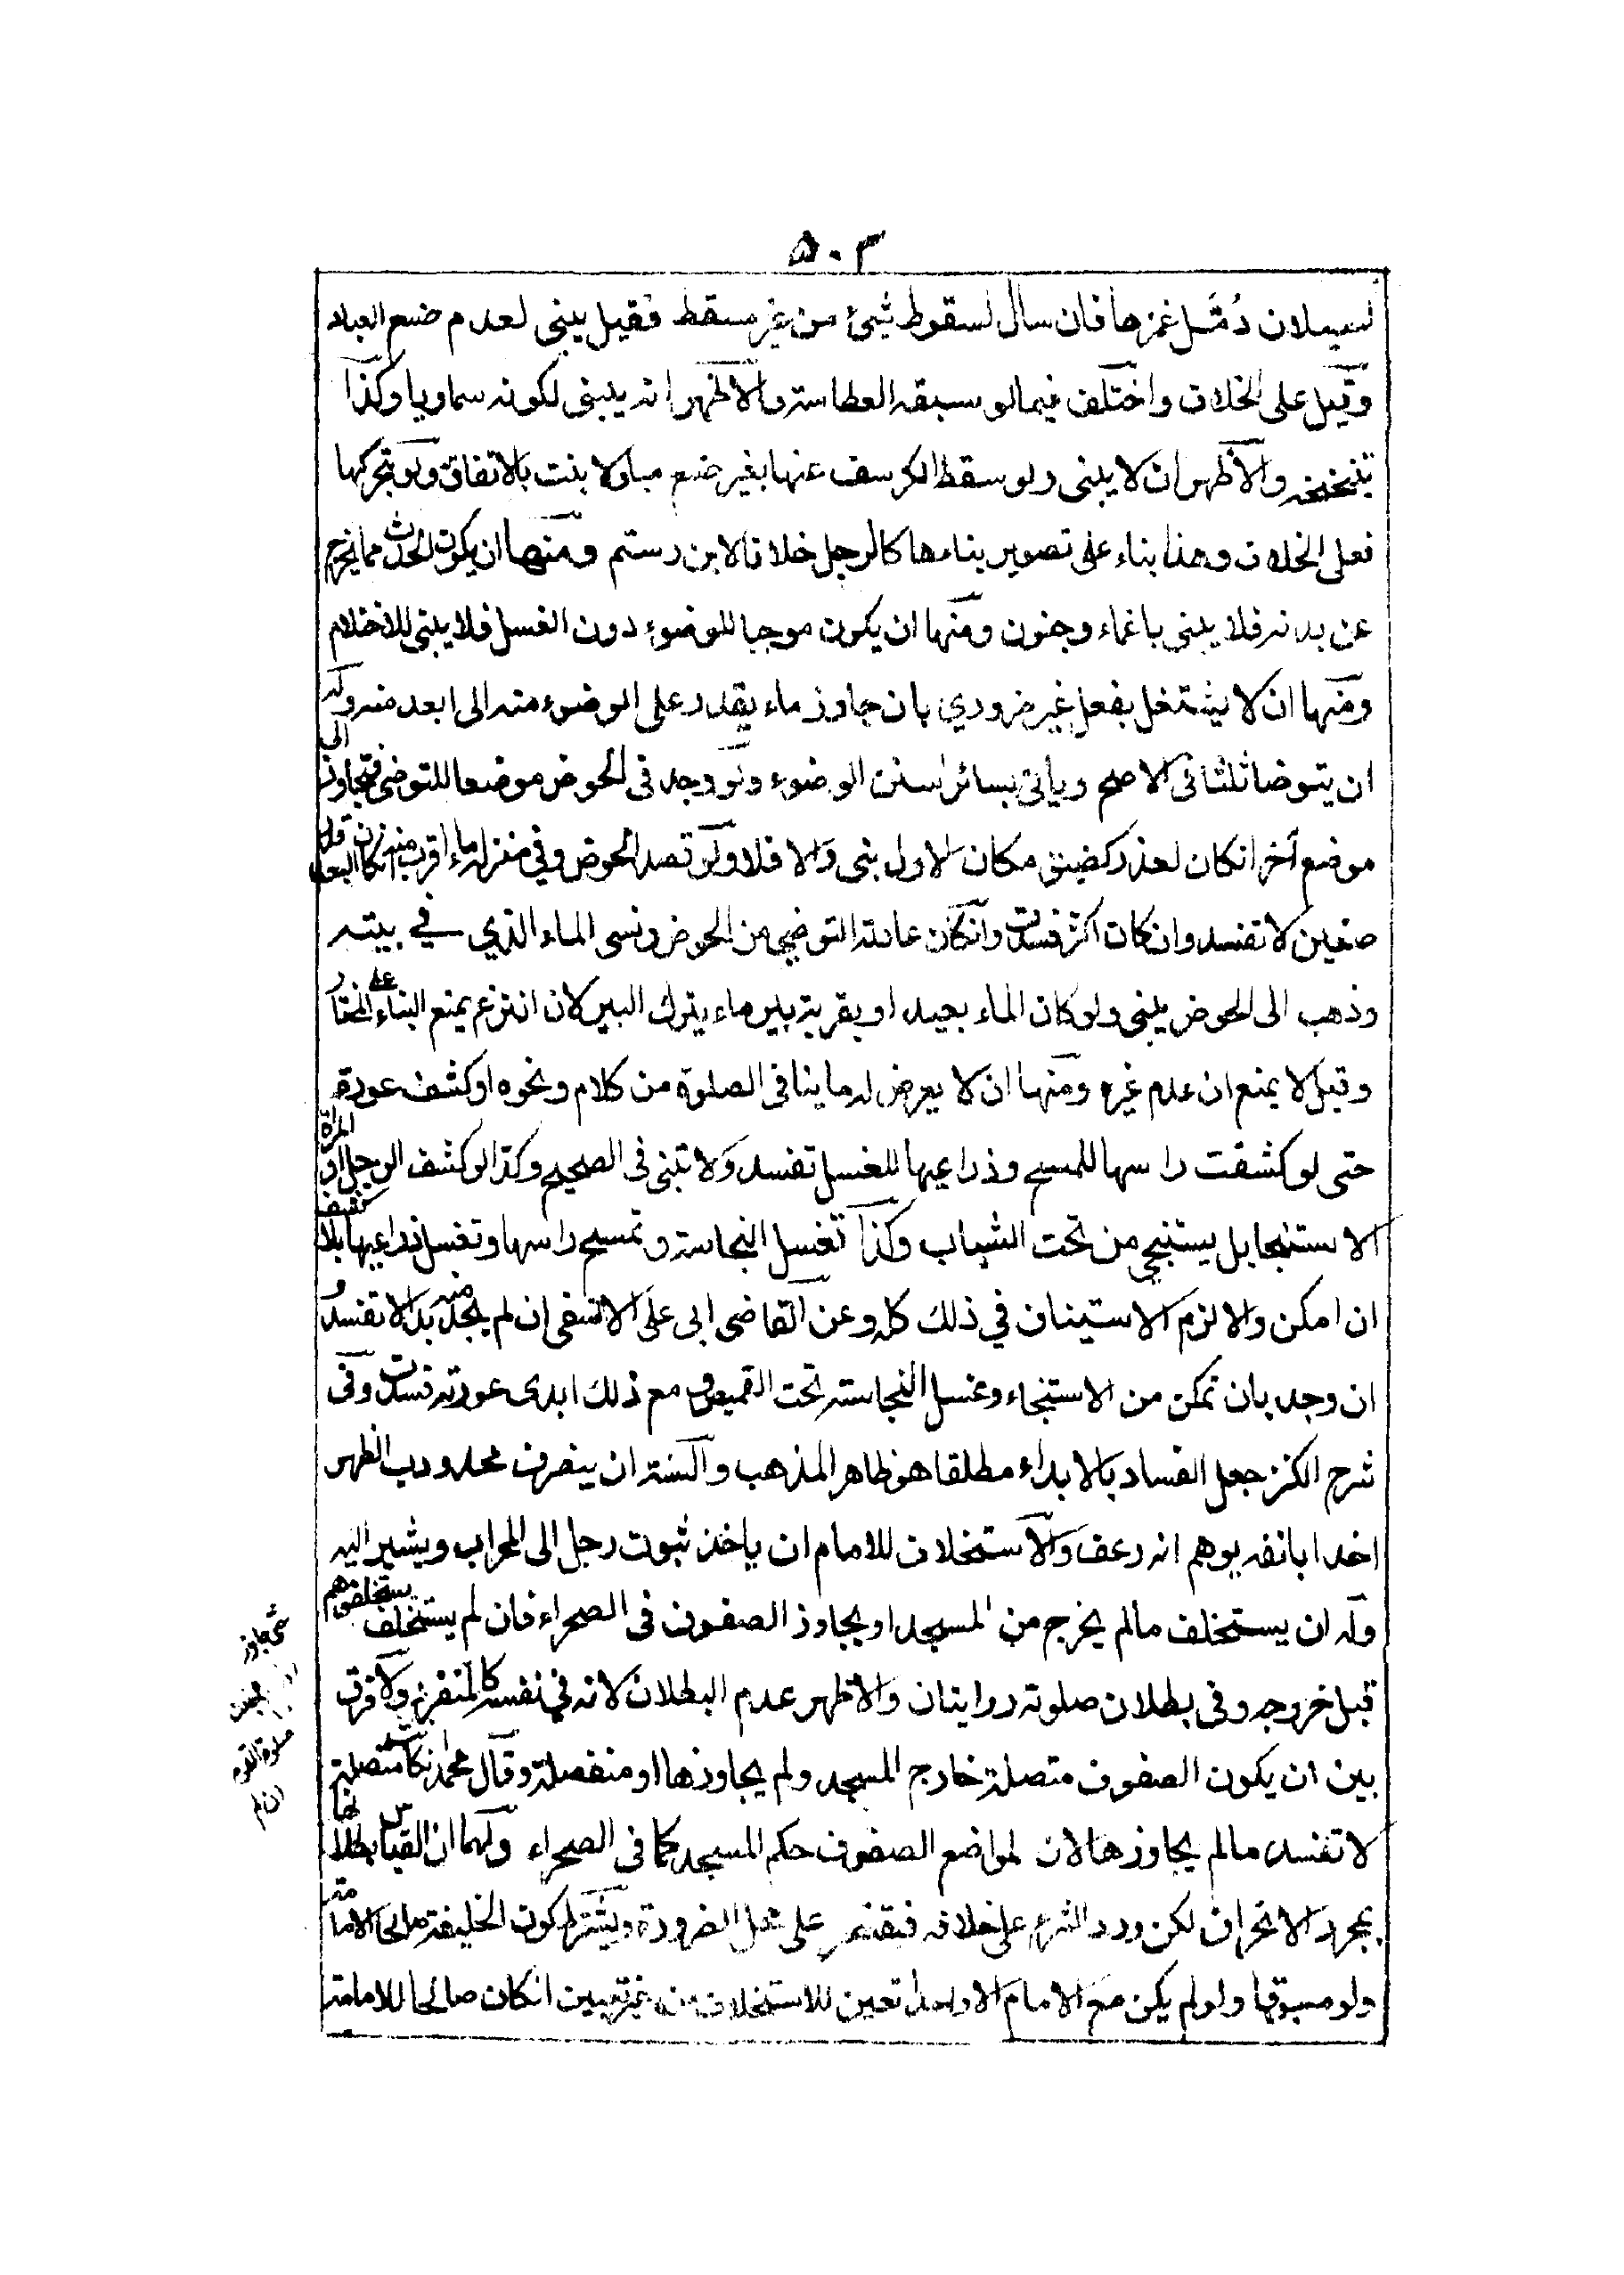 ٥٠٣
لسيلان دُمَّل غمزها فان سال لسقوط شيئ من غير مسقط فقيل يبنى لعدم صنع العباد
وقيل على الخلاف واختلف فيما لو سبقه العطاسة والاظهر انه يبنى لكونه سماويا وكذا
تنحنحه والاظهر ان لا يبنى ولو سقط الكرسف عنها بغير صنع مبلولا بنت بالاتفاق ولو بتحركها
فعلى الخلاف وهذا بناء على تصوير بناءها كالرجل خلافا لابن رستم ومنها ان يكون الحدث مما يخرج
عن بدنه فلا يبنى باغماء وجنون ومنها ان يكون موجبا للوضوء دون الغسل فلا يبنى للاحتلام
ومنها ان لا يشتغل بفعل غير ضروري بان جاوز ماء يقدر على الوضوء منه الى ابعد منه وله
ان يتوضا ثلثا فى الاصح وياتى بسائر سنن الوضوء ولو وجد فى الحوض موضعا للتوضى فتجاوز الى
موضع آخر انكان لعذر كضيق مكان الاول بنى والا فلا ولو قصد الحوض وفي منزله ماء اقرب منه انكان البعد قدر
صفين لا تفسد وان كان اكثر فسدت وانكان عادته التوضي من الحوض ونسى الماء الذي في بيته
وذهب الى الحوض يبنى ولو كان الماء بعيدا وبقربه بير ماء يترك البير لان النزع يمنع البناء على المختار
وقيل لا يمنع ان عدم غيره ومنها ان لا يعرض له ما ينافى الصلوة من كلام ونحوه او كشف عورة
حتى لو كشفت راسها للمسح وذراعيها للغسل تفسد ولا تبنى فى الصحيح وكذا لو كشف الرجل او المراة
الاستنجا بل يستنجي من تحت الثياب وكذا تغسل النجاسة وتمسح راسها وتغسل ذراعيها بلا كشف
ان امكن والا لزم الاستيناف في ذلك كله وعن القاضى ابى على النسفى ان لم يجد منه بدا لا تفسد و
ان وجد بان تمكن من الاستنجاء وغسل النجاسة تحت القميص مع ذلك ابدى عورته فسدت وفى
شرح الكنز جعل الفساد بالابداء مطلقا هو ظاهر المذهب والسنة ان ينصرف محدودب الظهر
اخذا بانفه يوهم انه رعف والاستخلاف للامام ان ياخذ بثوب رجل الى المحراب ويشير اليه
وله ان يستخلف مالم يخرج من المسجد او يجاوز الصفوف فى الصحراء فان لم يستخلف يستخلفوهم
قبل خروجه وفى بطلان صلوته روايتان والاظهر عدم البطلان لانه في نفسه كالمنفرد ولا فرق
بين ان يكون الصفوف متصلة خارج المسجد ولم يجاوزها او منفصلة وقال محمد ان كانت متصلة
لا تفسد مالم يجاوزها لان لمواضع الصفوف حكم المسجد كما فى الصحراء ولهما ان القياس بطلانها
بمجرد الانحراف لكن ورد الشرع على خلافه فيقتصر على محل الضرورة ويشترط كون الخليفة صالحا للامامة
ولو مسبوقا ولو لم يكن مع الامام الا واحد تعين للاستخلاف من غير تعيين انكان صالحا للامامة
حتى جاوز
صلوة القوم